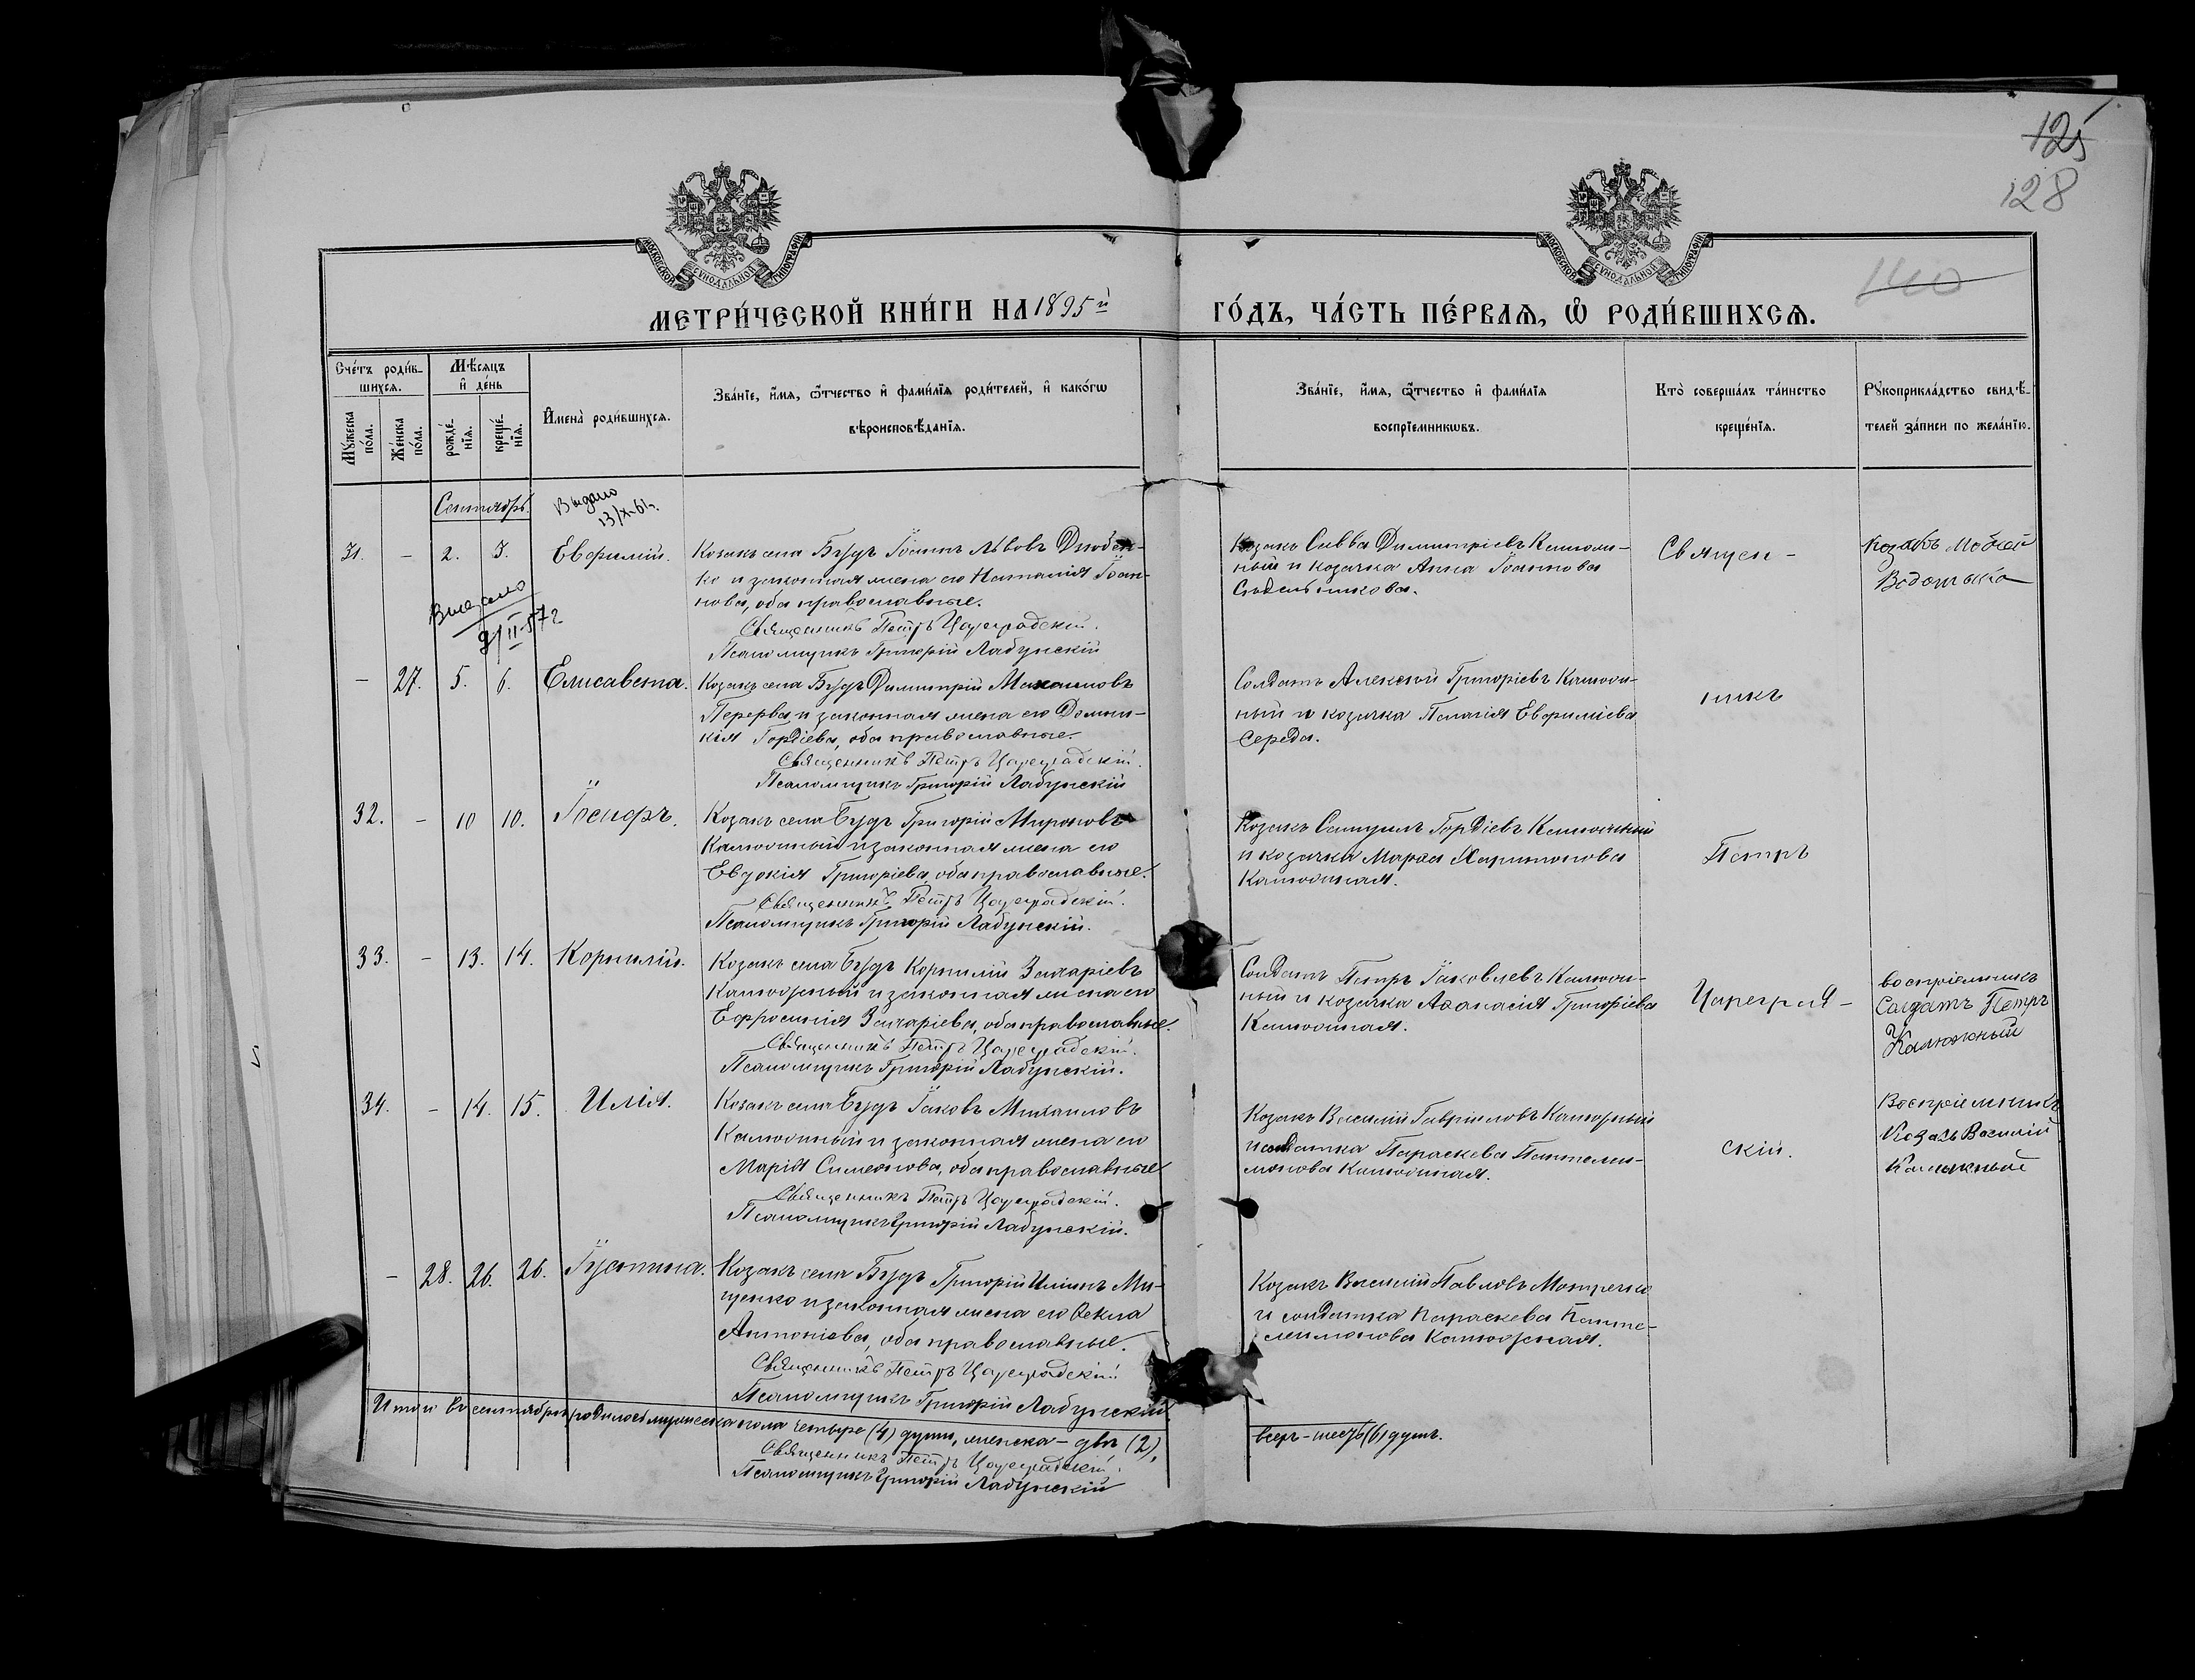 125
128
140
МОСКОВСКОЙ СУНОДАЛЬНОЙ ТИПОГРАФІИ
МОСКОВСКОЙ СУНОДАЛЬНОЙ ТИПОГРАФІИ
МЕТРИ́ЧЕСКОЙ КНИ́ГИ НА 1895й ГО́ДЪ, ЧА́СТЬ ПЕ́РВАѦ, Ѡ РОДИ́ВШИХСѦ.
Сче́тъ роди́в-
шихсѧ.
Мꙋжеска по́ла.
Же́нска по́ла.
Мѣ́сѧцъ
и҆ де́нь
рожде́-
нїѧ.
креще́-
нїѧ.
И҆мена̀ роди́вшихсѧ.
Зва́нїе, и҆́мѧ, ѻ҆́тчество и҆ фами́лїѧ роди́телей, и҆ како́гѡ
вѣроисповѣ́данїѧ.
Зва́нїе, и҆́мѧ, ѻ҆́тчество и҆ фами́лїѧ
воспрїе́мникѡвъ.
Кто̀ соверша́лъ та́инство
креще́нїѧ.
Рꙋкоприкла́дство свидѣ́-
телей за́писи по жела́нїю.
Сентябрь.
Выдано
13/X-61г.
31. – 2. 3. Евфимій.
Козакъ села Будъ Іоаннъ Львовъ Дзюбен-
ко и законная жена его Наталія Іоан-
нова, оба православные.
Священникъ Петръ Цареградскій.
Псаломщикъ Григорій Лабунскій
Козакъ Савва Димитріевъ Калюж-
ный и козачка Анна Іоаннова
Священ-
Козакъ
Выдано
2/II-57г
– 27. 5. 6. Елисавета.
Козакъ села Будъ Димитрій Михаиловъ
Перерва и законная жена его Домни-
кія Гордіева, оба православные.
Священникъ Петръ Цареградскій.
Псаломщикъ Григорій Лабунскій
Солдатъ Алексій Григоріевъ Калюж-
ный и козачка Пелагія Евфиміева
Середа.
никъ
32. – 10 10. Іосифъ.
Козакъ села Будъ Григорій Мироновъ
Калюжный и законная жена его
Евдокія Григоріева, оба православные.
Священникъ Петръ Цареградскій.
Псаломщикъ Григорій Лабунскій.
Козакъ Самуилъ Гордіевъ Калюжный
и козачка Марѳа Харитонова
Калюжная.
Петръ
33. – 13. 14. Корнилій.
Козакъ села Будъ Корнилій Захаріевъ
Калюжный и законная жена его
Ефросинія Захаріева, оба православные.
Священникъ Петръ Цареградскій.
Псаломщикъ Григорій Лабунскій.
Солдатъ Петръ Іаковлевъ Калюж-
ный и козачка Аѳанасія Григоріева
Калюжная.
Цареград-
воспріемникъ
Солдатъ Петръ
Калюжный
34. – 14. 15. Илія.
Козакъ села Будъ Іаковъ Михаиловъ
Калюжный и законная жена его
Марія Симеонова, оба православные
Священникъ Петръ Цареградскій.
Псаломщикъ Григорій Лабунскій.
Козакъ Василій Гавріиловъ Калюжный
и солдатка Параскева Пантелеи-
монова Калюжная.
скій.
Воспріемникъ
Козакъ Василій
Калюжный
– 28. 26. 26. Іустина.
Козакъ села Будъ Григорій Иліинъ Ми-
щенко и законная жена его Ѳекла
Антоніева, оба православные.
Священникъ Петръ Цареградскій
Псаломщикъ Григорій Лабунскій.
Козакъ Василій Павловъ
и солдатка Параскева Панте-
леимонова Калюжная.
Итого въ сентябрѣ родилось мужеска пола четыре (4) души, женска – двѣ (2),
всѣхъ – шесть (6) душъ.
Священникъ Петръ Цареградскій.
Псаломщикъ Григорій Лабунскій